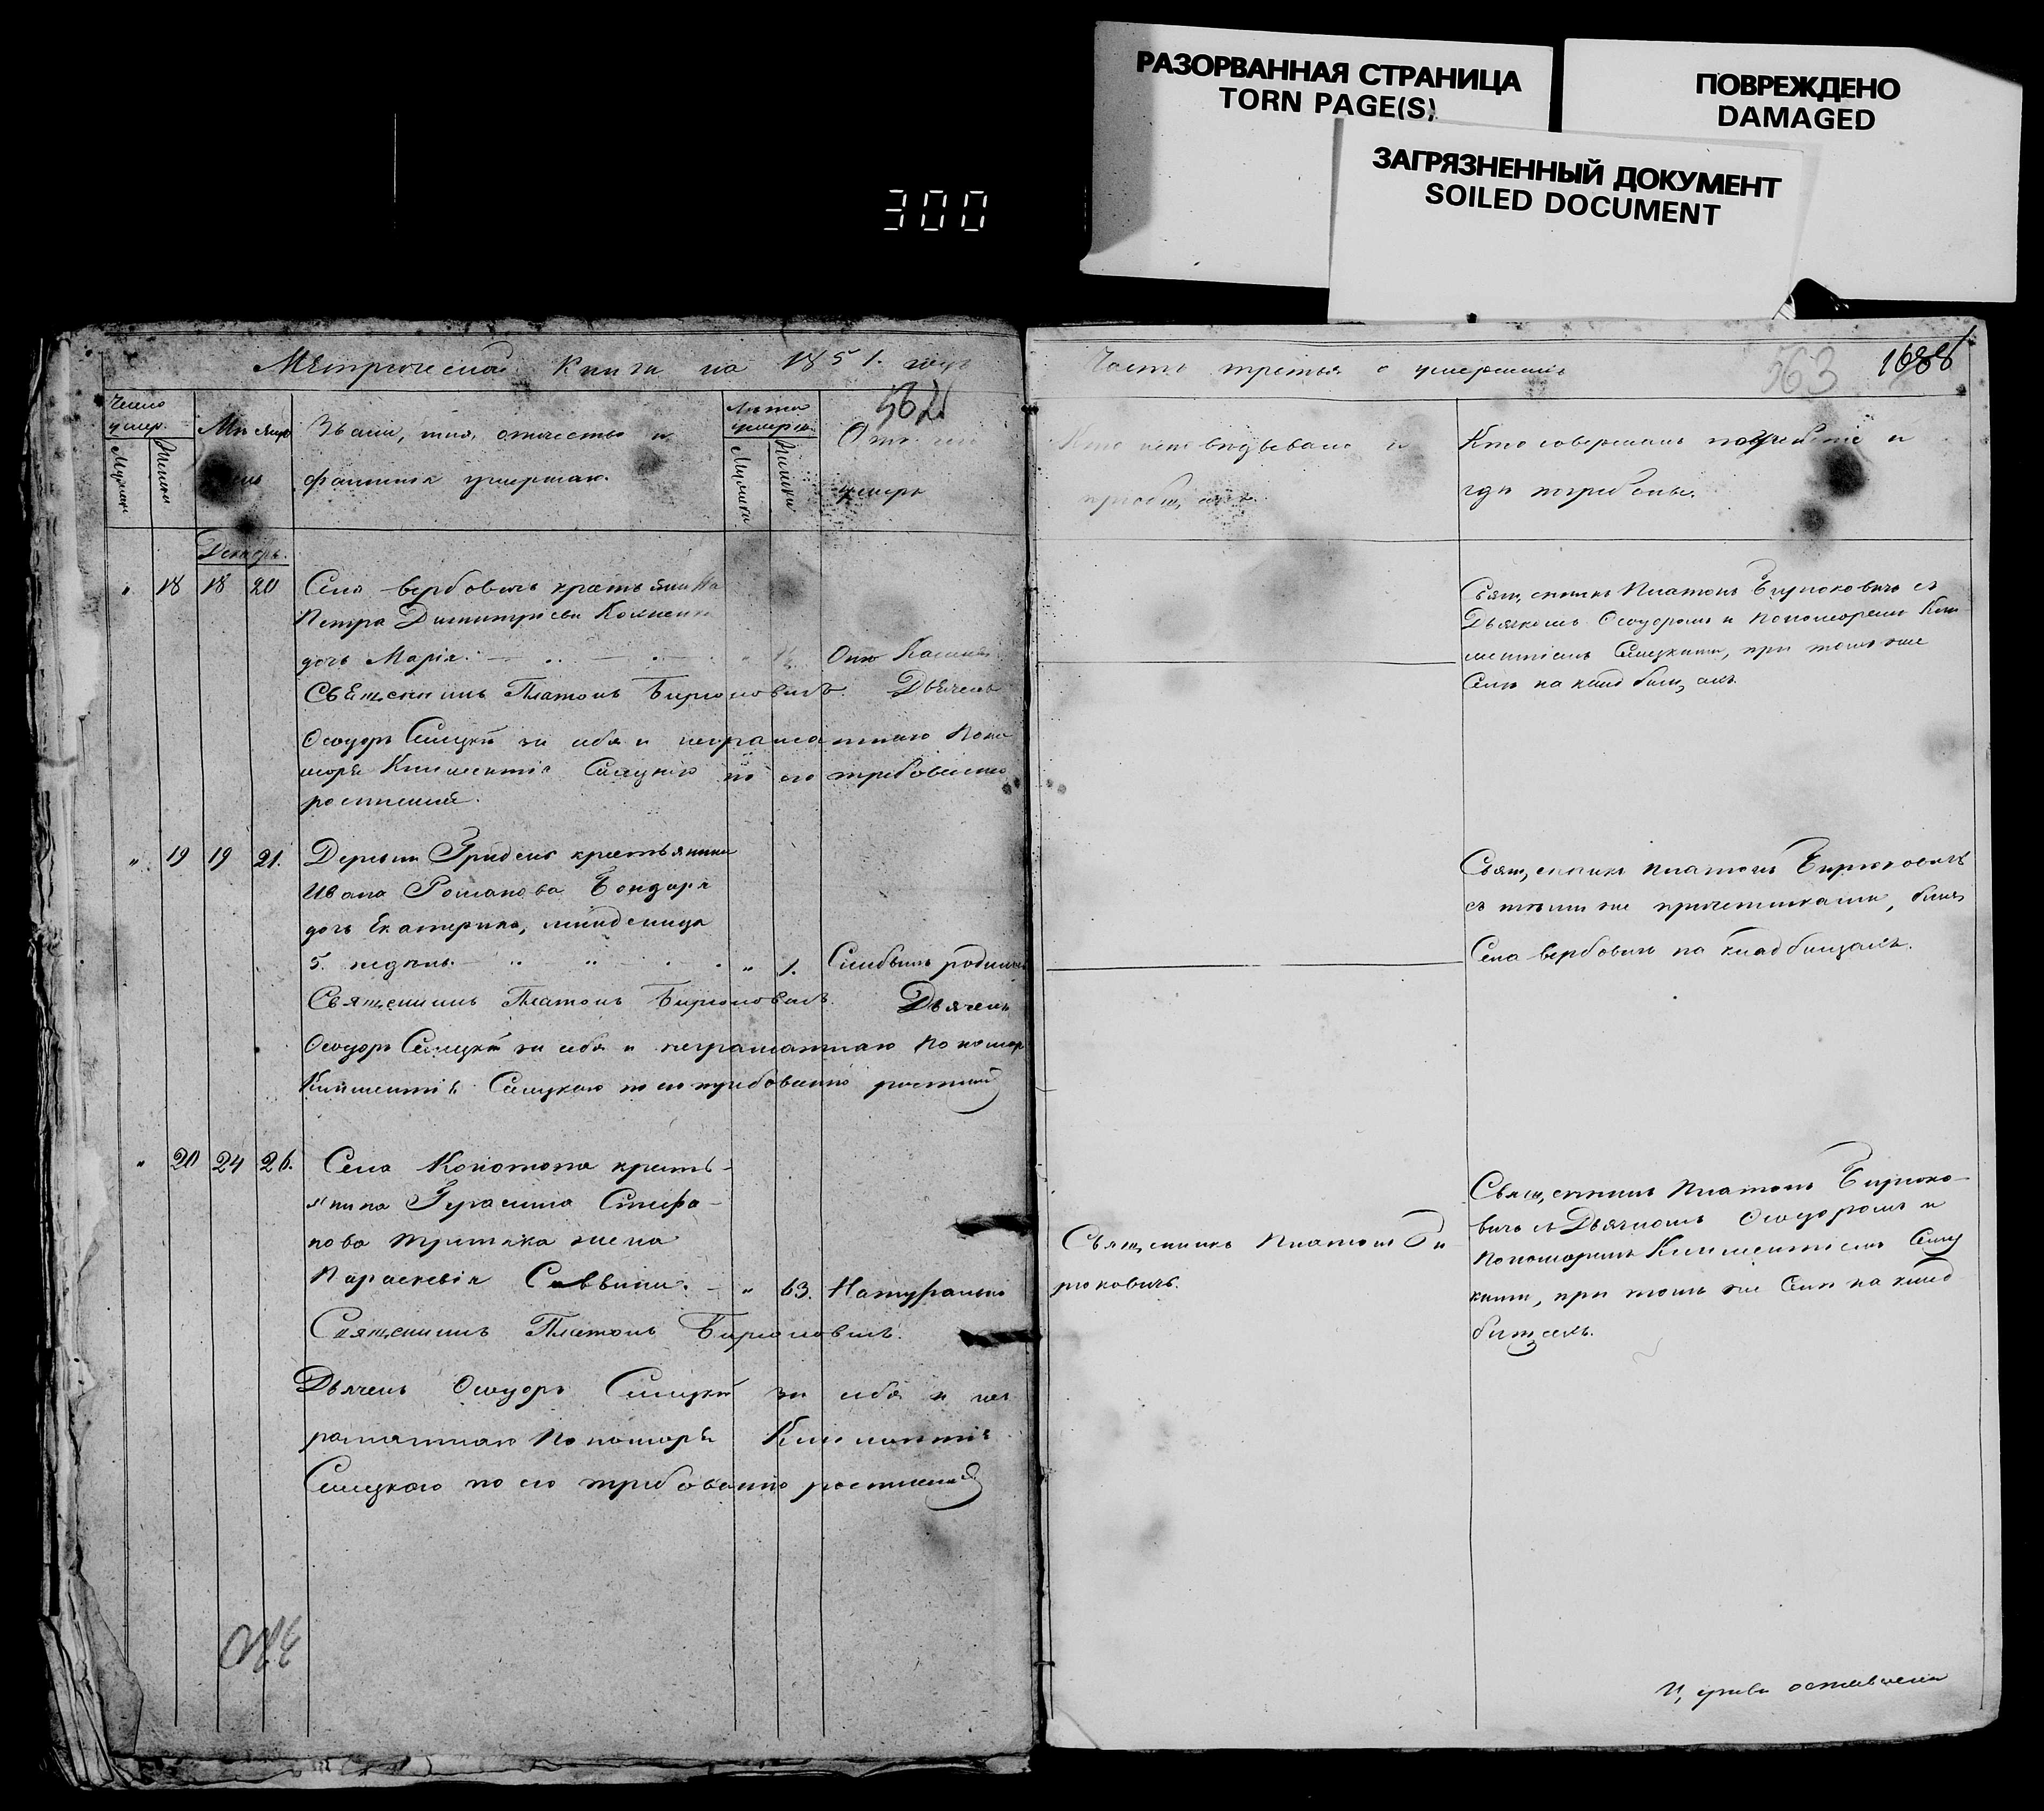 РАЗОРВАННАЯ СТРАНИЦА
TORN PAGE(S)
ПОВРЕЖДЕНО
DAMAGED
ЗАГРЯЗНЕННЫЙ ДОКУМЕНТ
SOILED DOCUMENT
300
Метрической книги на 1851. годъ
562
Число умер.
Мужска
Женска
Мѣсяцъ
Званіе, имя, отчество и
фамилія умершаго.
Лѣта умерш.
Мужска
Женска
Отъ чего
умеръ
Декабрь.
" 18 18 20 Села Вербовичъ крестьянина
Петра Димитріева
дочь Марія. Отъ Кашля
Священникъ Платонъ Бирюковичъ. Дьячекъ
Ѳеодоръ Силицкій за себя и неграматнаго Поно
моря Климентія Силицкаго по его требованію
росписался.
" 19 19 21. Деревни Гридень крестьянина
Ивана Романова Бондаря
дочь Екатерина, младеница
5. недѣль. " 1. Слабымъ родилась
Священникъ Платонъ Бирюковичъ. Дьячекъ
Ѳеодоръ Силицкій за себя и неграматнаго Пономор
Климентія Силицкаго по его требованію
" 20 24 26. Села Конотопа кресть-
янина Герасима Стефа-
нова жена
Параскевія Саввина. " 63. Натурально
Священникъ Платонъ Бирюковичъ.
Дьячекъ Ѳеодоръ Силицкій за себя и нег
раматнаго Пономоря Климентія
Силицкаго по его требованію
Часть третья о умершихъ
563 1688
Кто исповѣдывалъ и
пріобщалъ.
Кто совершалъ погребеніе и
гдѣ погребены.
Священникъ Платонъ Бирюковичъ съ
Дьячкомъ Ѳеодоромъ и Пономоремъ Кли
ментіемъ Силицкими, при томъ же
Селѣ на кладбищахъ.
Священникъ Платонъ Бирюковичъ
съ тѣми же причетниками, близъ
Села Вербовичъ на кладбищахъ.
Священникъ Платонъ Би
рюковичъ.
Священникъ Платонъ Бирюко-
вичъ съ Дьячкомъ Ѳеодоромъ и
Пономоремъ Климентіемъ Силиц
кими, при томъ же Селѣ на клад
бищахъ.